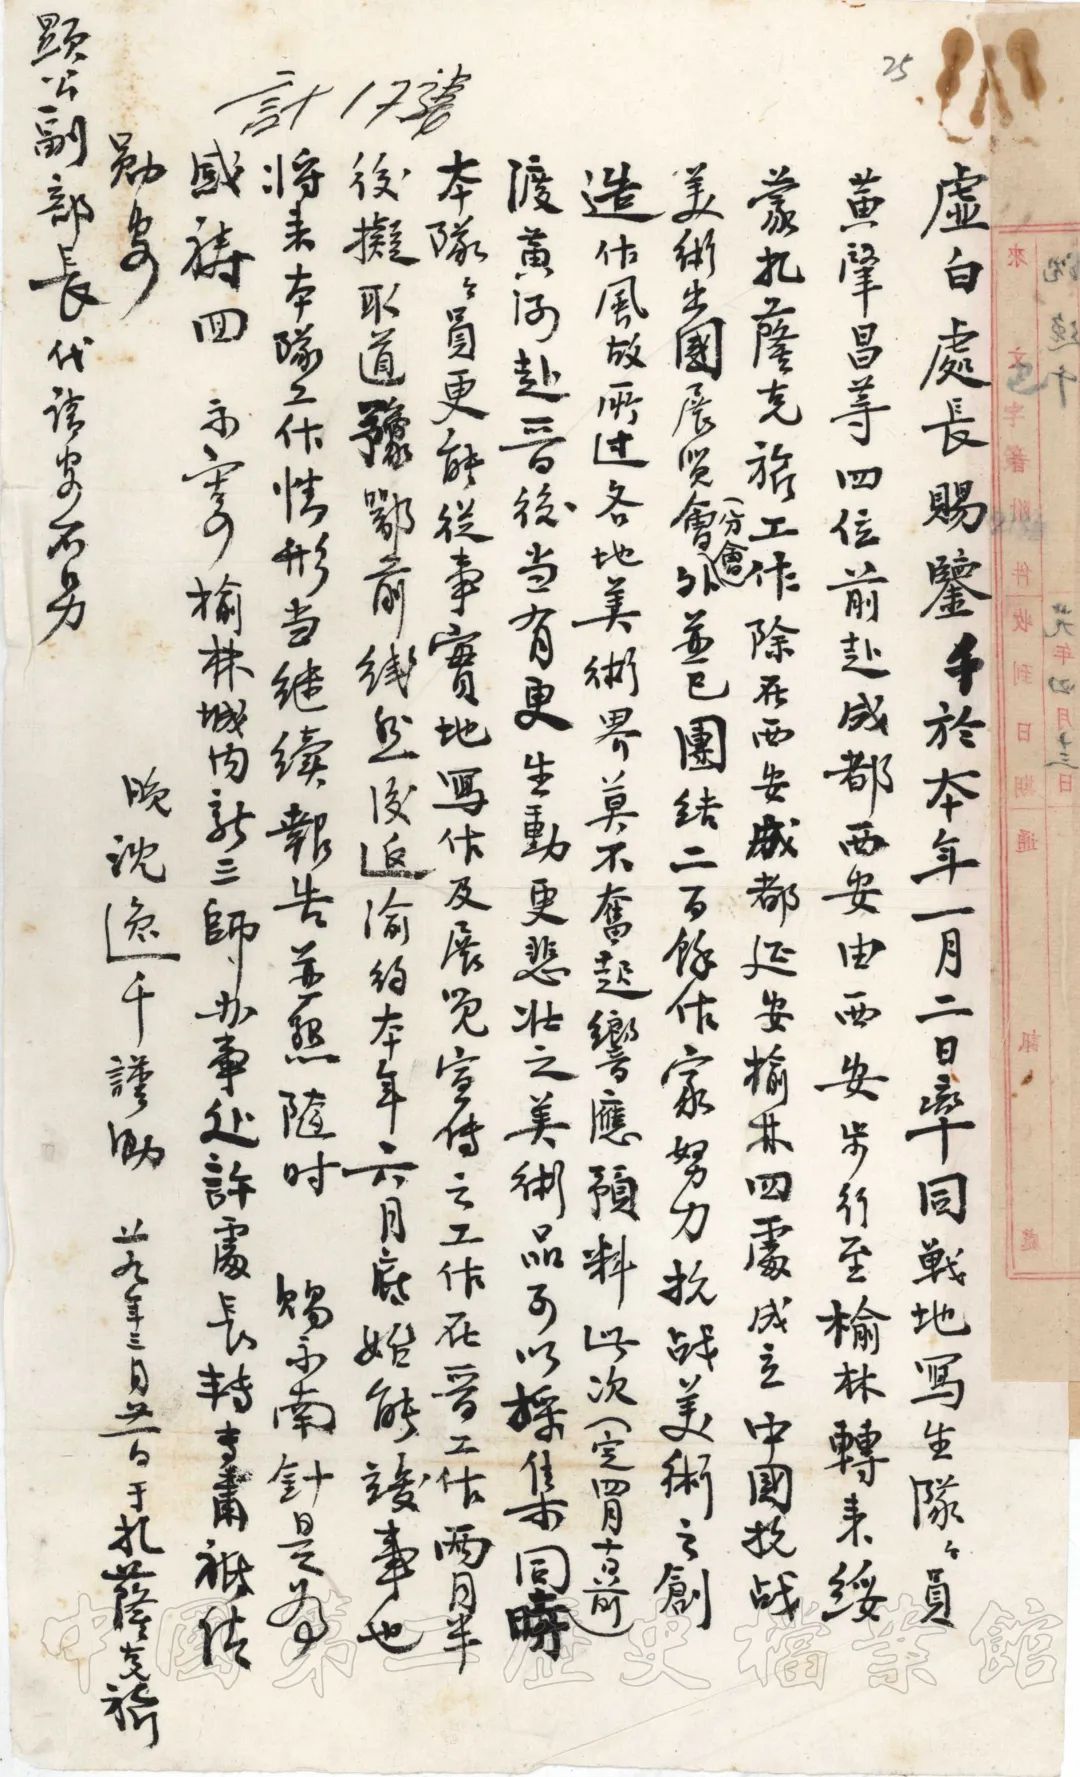 虛白處長賜鑒千於本年一月二日率同戰地寫生隊々員
黃肇昌等四位前赴成都西安由西安步行至榆林轉來綏
蒙扎薩克旗工作除在西安成都延安榆林四處成立中國抗战
美術出國展览會(分會)外並已團結二百餘作家努力抗战美術之創
造作風故所过各地美術界莫不奮起響應預料此次(定四月十日前)
渡黃河赴晉后後当有更生動更悲壯之美術品可以採集同時
本隊々員更能從事實地寫作及展览宣傳之工作在晉工作兩月半
後擬取道豫鄂前线然後返渝約本年六月底始能竣事也
将来本隊工作情形当继续報告並恳隨时 賜示南針是為
感禱回 示寄榆林城内新三師办事处許處長轉专肅祗请
勛安
晚沈逸千謹啟 廿九年三月廿一日于扎薩克旂
顕公副部長代请安不另
計17號
25
來文字 附件收到日期 通訊處
廿九年四月十三日
中國第二歷史檔案館